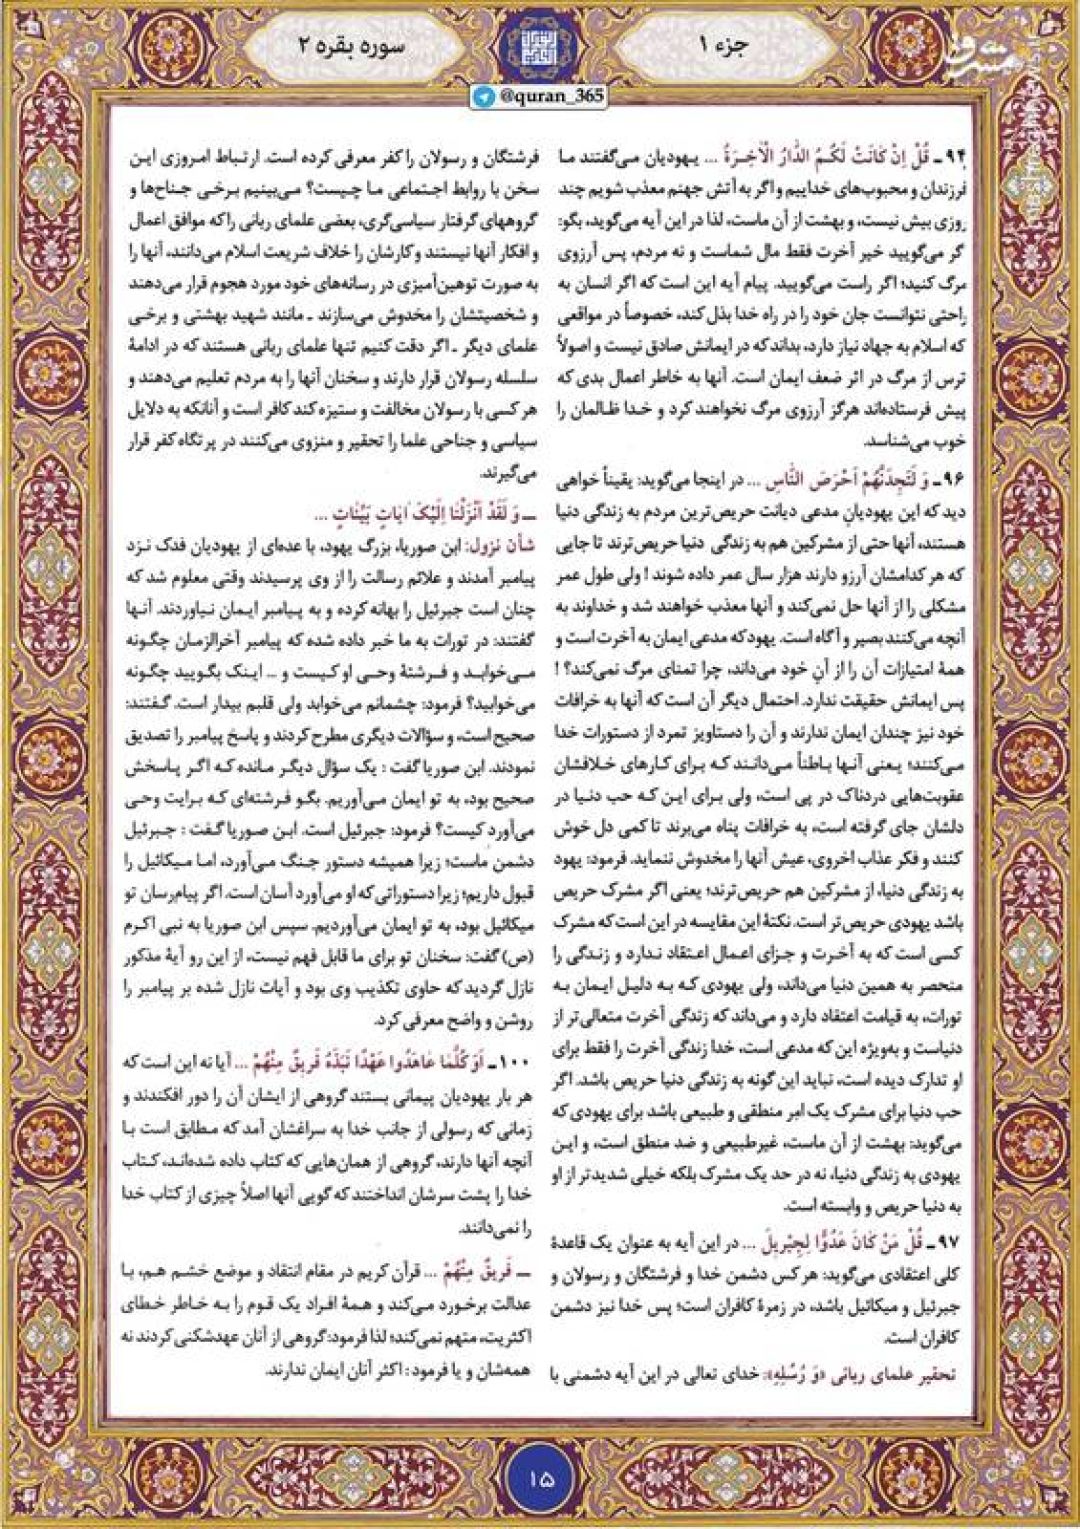 جزء ۱
سوره بقره ۲
@quran_365
مشرق
۹۴ـ قُلْ اِنْ کَانَتْ لَکُمُ الدَّارُ الْآخِرَةُ ... یهودیان می‌گفتند ما
فرزندان و محبوب‌های خداییم و اگر به آتش جهنم معذب شویم چند
روزی بیش نیست، و بهشت از آن ماست، لذا در این آیه می‌گوید، بگو:
گر می‌گویید خیر آخرت فقط مال شماست و نه مردم، پس آرزوی
مرگ کنید؛ اگر راست می‌گویید. پیام آیه این است که اگر انسان به
راحتی نتوانست جان خود را در راه خدا بذل کند، خصوصاً در مواقعی
که اسلام به جهاد نیاز دارد، بداند که در ایمانش صادق نیست و اصولاً
ترس از مرگ در اثر ضعف ایمان است. آنها به خاطر اعمال بدی که
پیش فرستاده‌اند هرگز آرزوی مرگ نخواهند کرد و خدا ظالمان را
خوب می‌شناسد.
۹۶ـ وَ لَتَجِدَنَّهُمْ اَحْرَصَ النَّاسِ ... در اینجا می‌گوید: یقیناً خواهی
دید که این یهودیانِ مدعی دیانت حریص‌ترین مردم به زندگی دنیا
هستند، آنها حتی از مشرکین هم به زندگی دنیا حریص‌ترند تا جایی
که هر کدامشان آرزو دارند هزار سال عمر داده شوند! ولی طول عمر
مشکلی را از آنها حل نمی‌کند و آنها معذب خواهند شد و خداوند به
آنچه می‌کنند بصیر و آگاه است. یهود که مدعی ایمان به آخرت است و
همهٔ امتیازات آن را از آنِ خود می‌داند، چرا تمنای مرگ نمی‌کند؟!
پس ایمانش حقیقت ندارد. احتمال دیگر آن است که آنها به خرافات
خود نیز چندان ایمان ندارند و آن را دستاویز تمرد از دستورات خدا
می‌کنند؛ یعنی آنها باطناً می‌دانند که برای کارهای خلافشان
عقوبت‌هایی دردناک در پی است، ولی برای این که حب دنیا در
دلشان جای گرفته است، به خرافات پناه می‌برند تا کمی دل خوش
کنند و فکر عذاب اخروی، عیش آنها را مخدوش ننماید. فرمود: یهود
به زندگی دنیا، از مشرکین هم حریص‌ترند؛ یعنی اگر مشرک حریص
باشد یهودی حریص‌تر است. نکتهٔ این مقایسه در این است که مشرک
کسی است که به آخرت و جزای اعمال اعتقاد ندارد و زندگی را
منحصر به همین دنیا می‌داند، ولی یهودی که به دلیل ایمان به
تورات، به قیامت اعتقاد دارد و می‌داند که زندگی آخرت متعالی‌تر از
دنیاست و به‌ویژه این که مدعی است، خدا زندگی آخرت را فقط برای
او تدارک دیده است، نباید این گونه به زندگی دنیا حریص باشد. اگر
حب دنیا برای مشرک یک امر منطقی و طبیعی باشد برای یهودی که
می‌گوید: بهشت از آن ماست، غیرطبیعی و ضد منطق است، و این
یهودی به زندگی دنیا، نه در حد یک مشرک بلکه خیلی شدیدتر از او
به دنیا حریص و وابسته است.
۹۷ـ قُلْ مَنْ کَانَ عَدُوًّا لِجِبْرِیلَ ... در این آیه به عنوان یک قاعدهٔ
کلی اعتقادی می‌گوید: هر کس دشمن خدا و فرشتگان و رسولان و
جبرئیل و میکائیل باشد، در زمرهٔ کافران است؛ پس خدا نیز دشمن
کافران است.
تحقیر علمای ربانی «وَ رُسُلِهِ»: خدای تعالی در این آیه دشمنی با
فرشتگان و رسولان را کفر معرفی کرده است. ارتباط امروزی این
سخن با روابط اجتماعی ما چیست؟ می‌بینیم برخی جناح‌ها و
گروههای گرفتار سیاسی‌گری، بعضی علمای ربانی را که موافق اعمال
و افکار آنها نیستند و کارشان را خلاف شریعت اسلام می‌دانند، آنها را
به صورت توهین‌آمیزی در رسانه‌های خود مورد هجوم قرار می‌دهند
و شخصیتشان را مخدوش می‌سازند ـ مانند شهید بهشتی و برخی
علمای دیگر ـ اگر دقت کنیم تنها علمای ربانی هستند که در ادامهٔ
سلسله رسولان قرار دارند و سخنان آنها را به مردم تعلیم می‌دهند و
هر کسی با رسولان مخالفت و ستیزه کند کافر است و آنانکه به دلایل
سیاسی و جناحی علما را تحقیر و منزوی می‌کنند در پرتگاه کفر قرار
می‌گیرند.
ـ وَ لَقَدْ اَنْزَلْنَا اِلَیْکَ اٰیَاتٍ بَیِّنَاتٍ ...
شأن نزول: ابن صوریا، بزرگ یهود، با عده‌ای از یهودیان فدک نزد
پیامبر آمدند و علائم رسالت را از وی پرسیدند وقتی معلوم شد که
چنان است جبرئیل را بهانه کرده و به پیامبر ایمان نیاوردند. آنها
گفتند: در تورات به ما خبر داده شده که پیامبر آخرالزمان چگونه
می‌خوابد و فرشتهٔ وحی او کیست و ... اینک بگویید چگونه
می‌خوابید؟ فرمود: چشمانم می‌خوابد ولی قلبم بیدار است. گفتند:
صحیح است، و سؤالات دیگری مطرح کردند و پاسخ پیامبر را تصدیق
نمودند. ابن صوریا گفت: یک سؤال دیگر مانده که اگر پاسخش
صحیح بود، به تو ایمان می‌آوریم. بگو فرشته‌ای که برایت وحی
می‌آورد کیست؟ فرمود: جبرئیل است. ابن صوریا گفت: جبرئیل
دشمن ماست؛ زیرا همیشه دستور جنگ می‌آورد، اما میکائیل را
قبول داریم؛ زیرا دستوراتی که او می‌آورد آسان است. اگر پیام‌رسان تو
میکائیل بود، به تو ایمان می‌آوردیم. سپس ابن صوریا به نبی اکرم
(ص) گفت: سخنان تو برای ما قابل فهم نیست، از این رو آیهٔ مذکور
نازل گردید که حاوی تکذیب وی بود و آیات نازل شده بر پیامبر را
روشن و واضح معرفی کرد.
۱۰۰ـ اَوَ کُلَّمَا عَاهَدُوا عَهْدًا نَبَذَهُ فَرِیقٌ مِنْهُمْ ... آیا نه این است که
هر بار یهودیان پیمانی بستند گروهی از ایشان آن را دور افکندند و
زمانی که رسولی از جانب خدا به سراغشان آمد که مطابق است با
آنچه آنها دارند، گروهی از همان‌هایی که کتاب داده شده‌اند، کتاب
خدا را پشت سرشان انداختند که گویی آنها اصلاً چیزی از کتاب خدا
را نمی‌دانند.
ـ فَرِیقٌ مِنْهُمْ ... قرآن کریم در مقام انتقاد و موضع خشم هم، با
عدالت برخورد می‌کند و همهٔ افراد یک قوم را به خاطر خطای
اکثریت، متهم نمی‌کند؛ لذا فرمود: گروهی از آنان عهدشکنی کردند نه
همه‌شان و یا فرمود: اکثر آنان ایمان ندارند.
۱۵